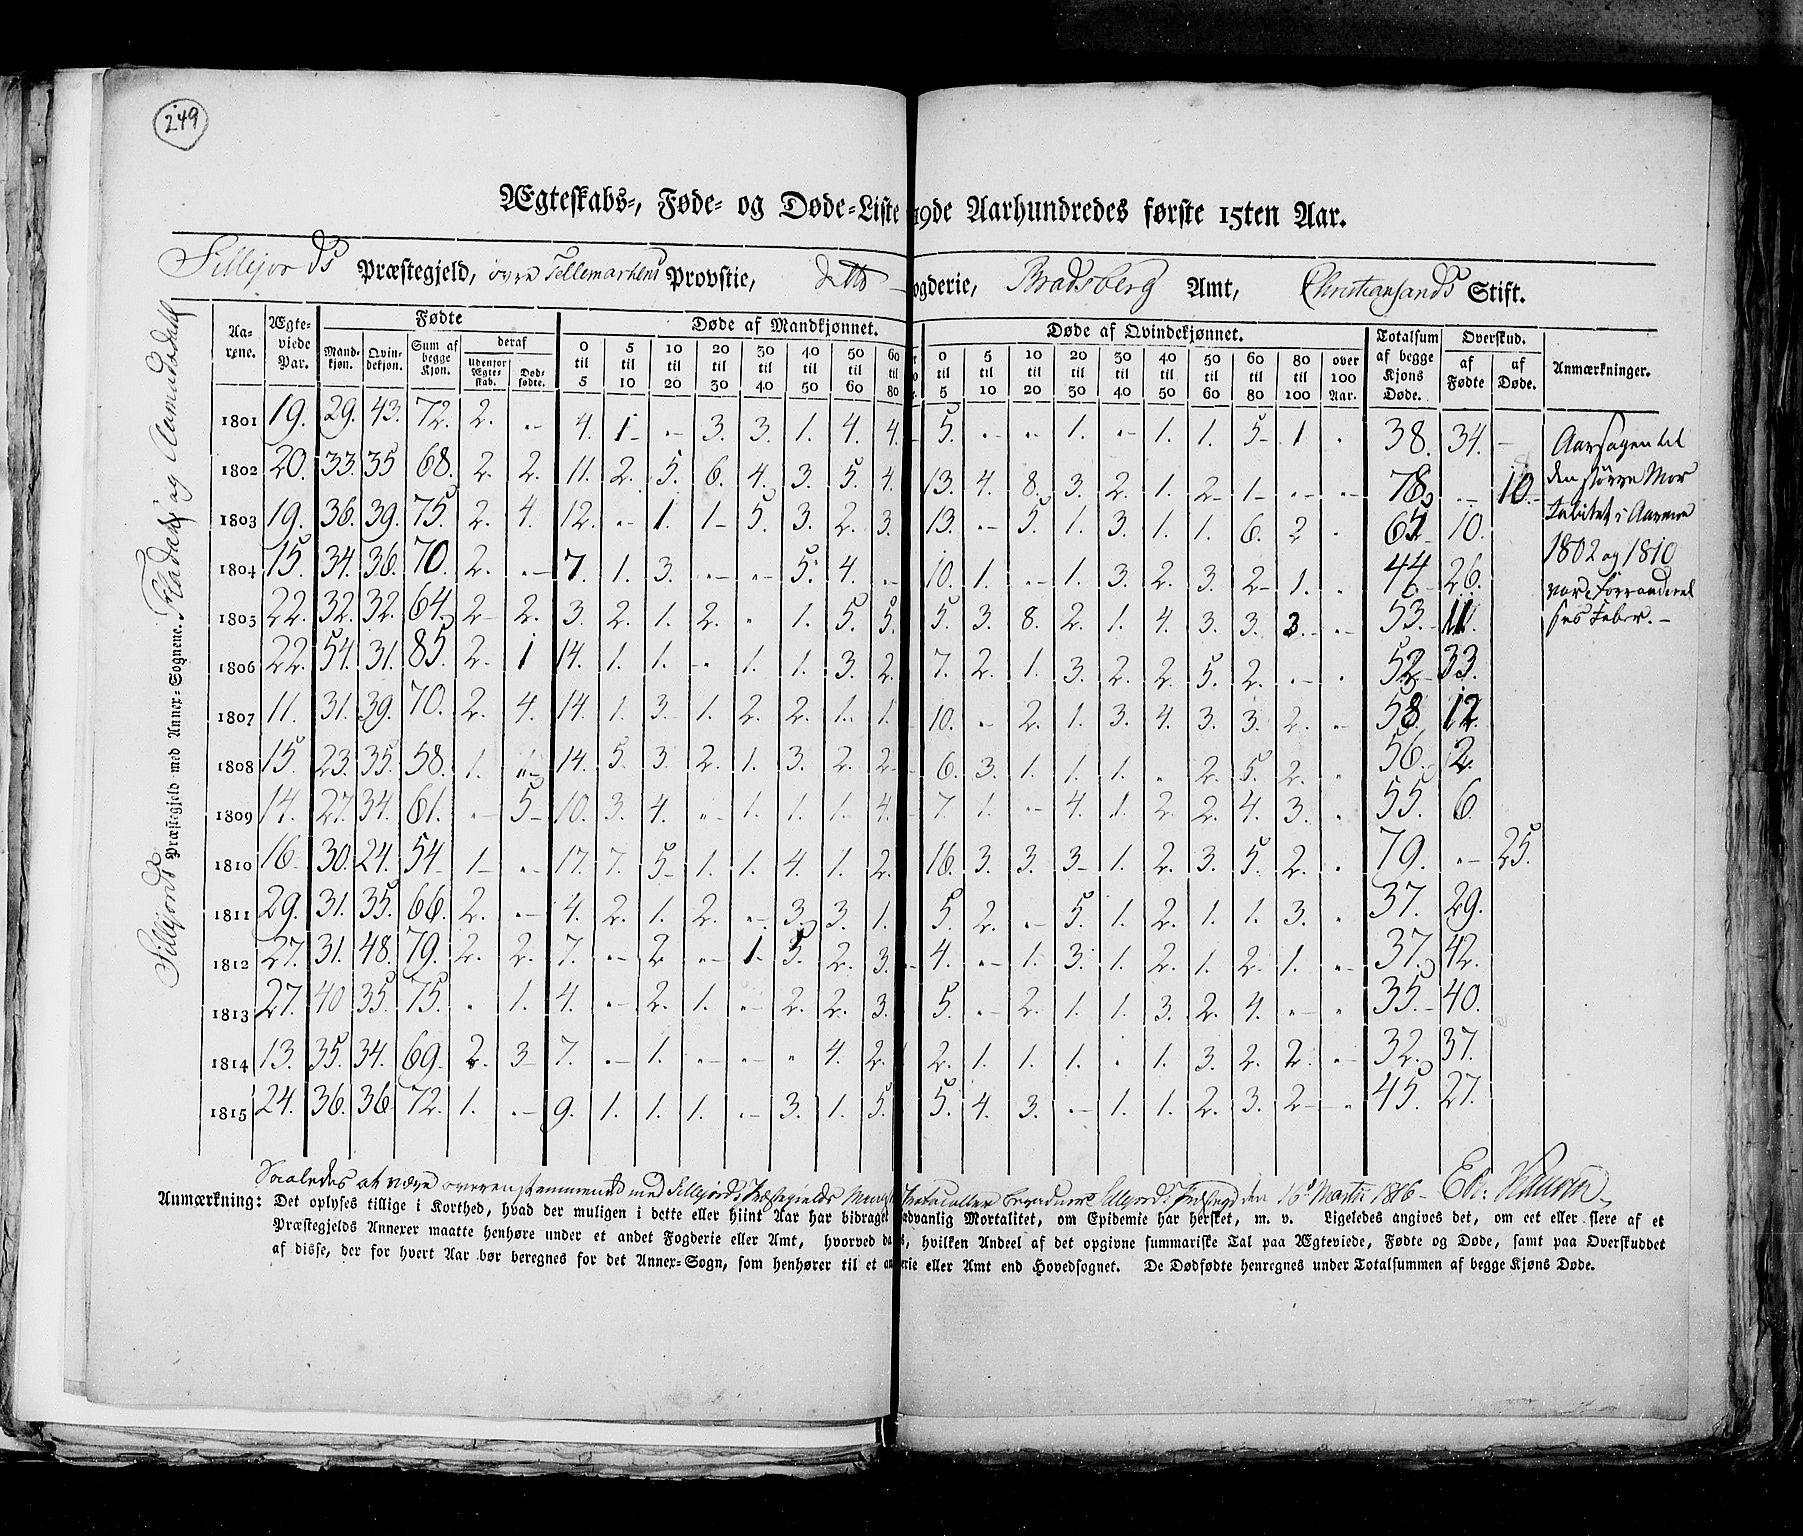 249
Ægteskabs-, Føde- og Døde-Liste 19de Aarhundredes første 15ten Aar.
Sillejords Præstegjeld, øvre Tellemarkens Provstie, ditto ogderie, Bradsberg Amt, Christiansands Stift.
Sillejords Præstegjeld med Annex-Sognene. Fladahl og Aamodsdahl
Aarene. Ægteviede Par. Fødte Døde af Mandkjønnet. Døde af Qvindekjønnet. Totalsum af begge Kjøns Døde. Overskud. Anmærkninger.
Mandkjøn. Qvindekjøn. Sum af begge Kjøn. deraf udenfor Ægteskab. Dødfødte. af Fødte af Døde.
0 til 5 5 til 10 10 til 20 20 til 30 30 til 40 40 til 50 50 til 60 60 til 80 0 til 5 5 til 10 10 til 20 20 til 30 30 til 40 40 til 50 50 til 60 60 til 80 80 til 100 over 100 Aar.
1801 19. 29. 43. 72. 2. „ 4. 1 „ 3. 3. 1. 4. 4. 5. „ „ 1. „ 1. 1. 5 1 „ 38. 34. –
1802 20. 33. 35 68. 2. 2. 11. 2. 5. 6. 4. 3. 5. 4. 13. 4. 8. 3. 2. 1. 2 1 „ „ 78. „ 10.
1803 19. 36. 39. 75. 2. 4. 12. „ 1. 1 5. 3. 2. 3. 13. „ 5. 1. 3. 1. 1. 6. 2 „ 65 10.
1804 15. 34. 36. 70. 2. „ 7. 1. 3. „ „ 5. 4. „ 10. 1. „ 1. 3. 2. 3. 2 1. „ 44 26.
1805 22. 32. 32. 64. 2 2. 3. 2. 1. 2. „ 1. 5. 5. 5. 3. 8. 2. 1. 4. 3. 3. 3. „ 53. 11.
1806 22. 54. 31. 85. 2. 1 14. 1. 1. „ 1. 1. 3. 2. 7. 2. 1. 3. 2. 2. 5. 2. „ „ 52 33.
1807 11. 31. 39. 70. 2. 4. 14. 1. 3. 1. 2. 2. 1. 1. 10. „ 2. 1. 3. 4. 3. 3. 2. „ 58. 12.
1808 15. 23. 35. 58. 1. „ 14. 5. 3. 2. 1. 3. 2. 2 6. 3. 1. 1. 1. „ 2. 5. 2. „ 56. 2.
1809 14. 27. 34. 61. „ 5 10. 3. 4. „ 1. 1. 1. 4. 7. 1. „ 4. 1. 2 2. 4. 3. „ 55. 6.
1810 16 30. 24. 54 1 „ 17. 7. 5 1. 1. 4. 1. 2. 16. 3. 3. 3 1. 2. 3. 5. 2. „ 79. „ 25.
1811 29. 31. 35. 66. 2. „ 4. 2. 1. 2. „ 3. 3. 1. 5. 2. „ 5. 1. 2. 1. 1. 3. „ 37. 29.
1812 27. 31. 48. 79. 2. 2. 7. „ 2 „ 1. 5. 2. 3. 4. „ 1. 3. 1. 2. 1. 2. 1. „ 37. 42.
1813 27. 40 35. 75. „ 1. 4. „ 2. 1. „ 2. 2. 3. 5. „ 2. 1. 1. 3. 2. 4. „ „ 35. 40.
1814 13. 35. 34. 69. 2. 3 7. „ 1. „ „ „ 4. 2. 2. 1. 1. 1. „ 1. 3. 2. 2. „ 32. 37.
1815 24. 36. 36 72. 1. „ 9. 1. 1. 1. „ 3. 1. 5. 5. 4. 3. „ 1. 1. 2. 3. 2 „ 45. 27.
Aarsagen til
den større Mor
talitet i Aarene
1802 og 1810
var Forraadnel
ses Feber. –
Saaledes at være overensstemmende med Sillejords Præstegields den 16d Martii 1816 –
Anmærkning: Det oplyses tillige i Korthed, hvad der muligen i dette eller hiint Aar har bidraget dvanlig Mortalitet, om Epidemie har hersket, m. v. Ligeledes angives det, om eet eller flere af et
Præstegjelds Annexer maatte henhøre under et andet Fogderie eller Amt, hvorved da , hvilken Andeel af det opgivne summariske Tal paa Ægteviede, Fødte og Døde, samt paa Overskuddet
af disse, der for hvert Aar bør beregnes for det Annex-Sogn, som henhører til et an rie eller Amt end Hovedsognet. De Dødfødte henregnes under Totalsummen af begge Kjøns Døde.